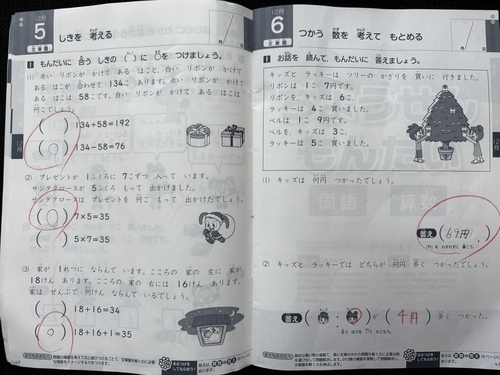 12月
5
文章題
しきを 考える
1 もんだいに 合う しきの( )に ○を つけましょう。
(1) 赤い リボンが かけて ある はこと、白い リボンが かけて
ある はこが 合わせて 134こ あります。白い リボンが かけて ある
はこは 58こです。赤い リボンが かけて ある はこは
何こでしょう。
( ) 134+58=192
(○) 134-58=76
(2) プレゼントが 1ふくろに 7こずつ 入って います。
サンタクロースが 5ふくろ もって 出かけました。
サンタクロースは プレゼントを 何こ もって 出かけたでしょう。
(○) 7×5=35
( ) 5×7=35
(3) 家が 1れつに ならんで います。こころの 家の 左に 家が
18けん あります。こころの 家の 右には 16けん あります。
家は ぜんぶで 何けん ならんで いるでしょう。
( ) 18+16=34
(○) 18+16+1=35
12月
6
文章題
つかう 数を 考えて もとめる
1 お話を 読んで、もんだいに 答えましょう。
キッズと ラッキーは ツリーの かざりを 買いに 行きました。
リボンは 1こ 7円です。
リボンを、キッズは 6こ、
ラッキーは 4こ 買いました。
ベルは 1こ 9円です。
ベルを、キッズは 3こ、
ラッキーは 5こ 買いました。
(1) キッズは 何円 つかったでしょう。
答え (69円)
(2) キッズと ラッキーでは どちらが 何円 多く つかったでしょう。
答え ( ・ )が( 4円 )多く つかった。